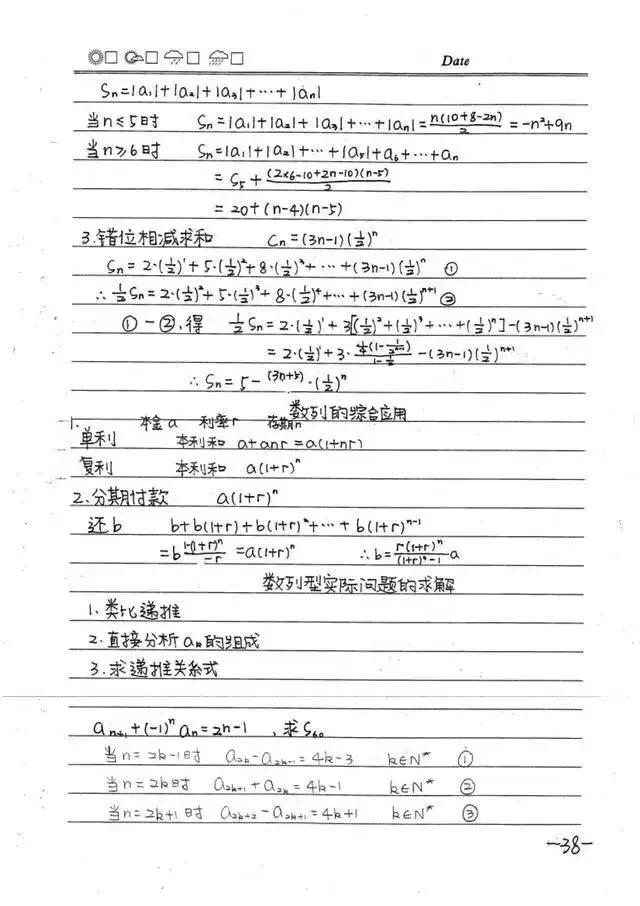 Date
Sn=|a₁|+|a₂|+|a₃|+···+|an|
当n≤5时 Sn=|a₁|+|a₂|+|a₃|+···+|an|=n(10+8-2n)/2=-n²+9n
当n≥6时 Sn=|a₁|+|a₂|+···+|a₅|+a₆+···+an
=S₅+(2×6-10+2n-10)(n-5)/2
=20+(n-4)(n-5)
3.错位相减求和 Cn=(3n-1)(1/2)ⁿ
Sn=2·(1/2)¹+5·(1/2)²+8·(1/2)³+···+(3n-1)(1/2)ⁿ ①
∴1/2Sn=2·(1/2)²+5·(1/2)³+8·(1/2)⁴+···+(3n-1)(1/2)ⁿ⁺¹ ②
①-②,得 1/2Sn=2·(1/2)¹+3[(1/2)²+(1/2)³+···+(1/2)ⁿ]-(3n-1)(1/2)ⁿ⁺¹
=2·(1/2)¹+3·1/4(1-1/2ⁿ⁻¹)/(1-1/2)-(3n-1)(1/2)ⁿ⁺¹
∴Sn=5-(3n+5)·(1/2)ⁿ
数列的综合应用
1. 本金a 利率r 存期n
单利 本利和 a+anr=a(1+nr)
复利 本利和 a(1+r)ⁿ
2.分期付款 a(1+r)ⁿ
还b b+b(1+r)+b(1+r)²+···+b(1+r)ⁿ⁻¹
=b(1-(1+r)ⁿ)/-r=a(1+r)ⁿ ∴b=r(1+r)ⁿ/((1+r)ⁿ-1)a
数列型实际问题的求解
1.类比递推
2.直接分析an的组成
3.求递推关系式
an+1+(-1)ⁿan=2n-1,求S₆₀
当n=2k-1时 a2k-a2k-1=4k-3 k∈N* ①
当n=2k时 a2k+1+a2k=4k-1 k∈N* ②
当n=2k+1时 a2k+2-a2k+1=4k+1 k∈N* ③
-38-